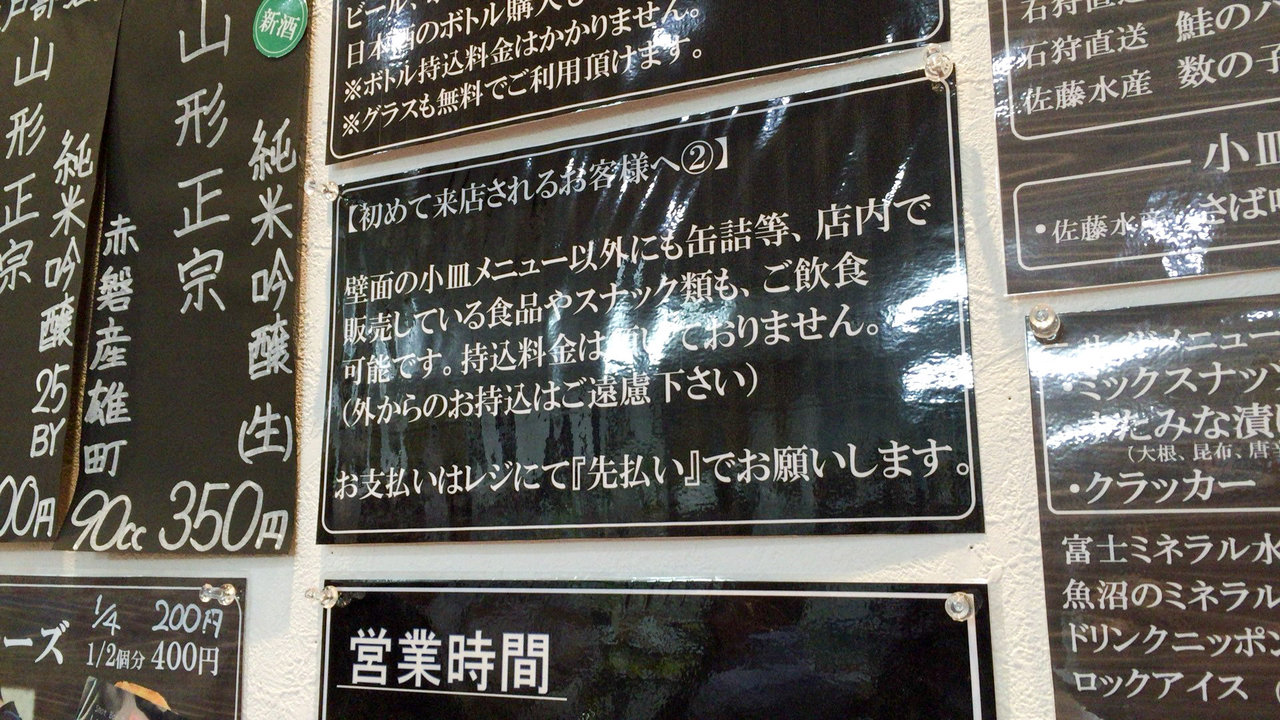 山形正宗
純米吟醸
25
BY
00円
新酒
山形正宗
純米吟醸(生)
赤磐産雄町
90cc 350円
ーズ
1/4 200円
1/2個分 400円
ビール、
日本酒のボトル購入も
※ボトル持込料金はかかりません。
※グラスも無料でご利用頂けます。
【初めて来店されるお客様へ②】
壁面の小皿メニュー以外にも缶詰等、店内で
販売している食品やスナック類も、ご飲食
可能です。持込料金は頂いておりません。
(外からのお持込はご遠慮下さい)
お支払いはレジにて『先払い』でお願いします。
営業時間
石狩直送
石狩直送 鮭のハ
佐藤水産 数の子
小皿
・佐藤水産 さば
メニュー
・ミックスナッツ
たみな漬
(大根、昆布、唐辛
・クラッカー
富士ミネラル水
魚沼のミネラル
ドリンクニッポン
ロックアイス (